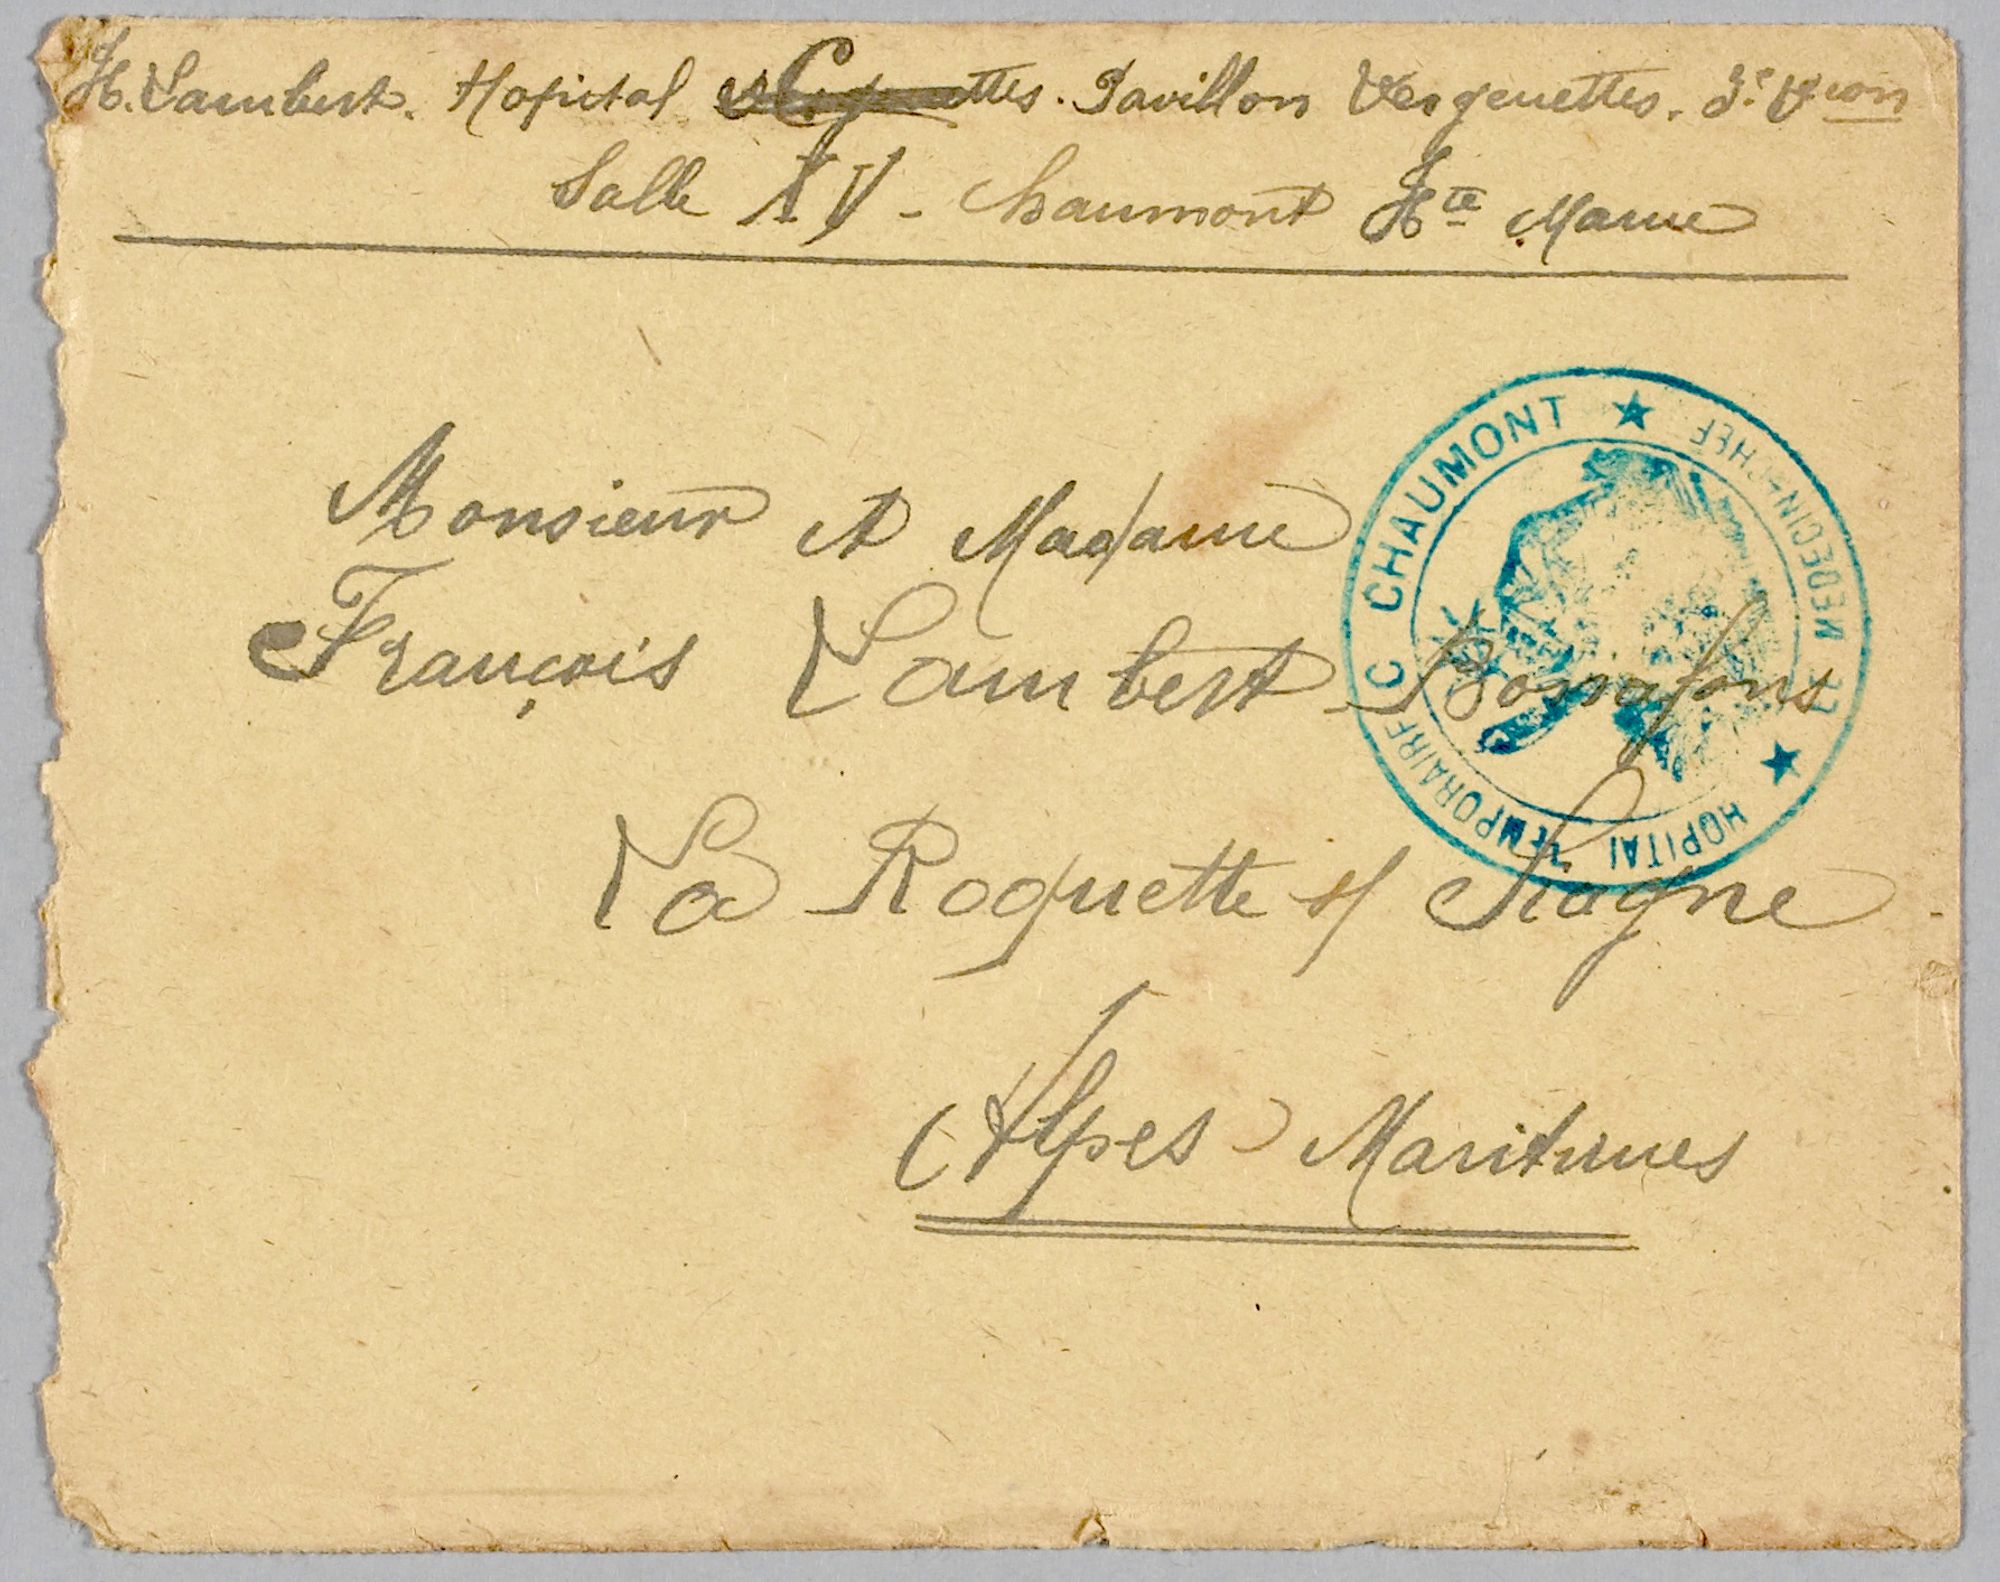 H. Lambert. Hopital C. Pavillon Vergenettes. 3e Don
Salle XV - Chaumont Hte Marne
Monsieur et Madame
François Lambert Bonnafons
La Roquette s/ Siagne
Alpes-Maritimes
HOPITAL TEMPORAIRE C CHAUMONT ★ LE MEDECIN-CHEF ★